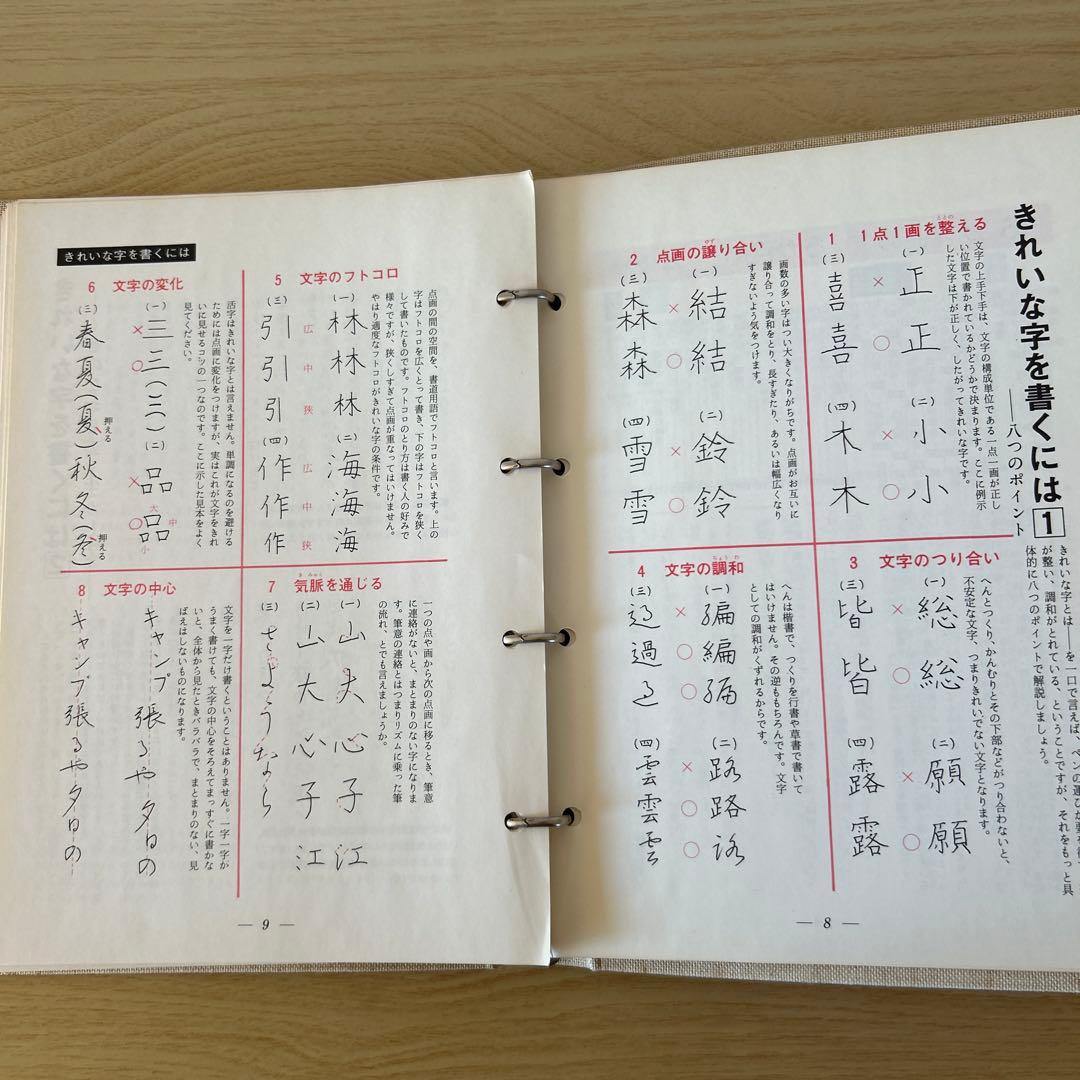 きれいな字を書くには1
――八つのポイント
きれいな字とは――を一口で言えば、ペンの運びが
が整い、調和がとれている、ということですが、それをもっと具
体的に八つのポイントで解説しましょう。
1 1点1画を整える
ととの
文字の上手下手は、文字の構成単位である一点一画が正し
い位置で書かれているかどうかで決まります。ここに例示
した文字は下が正しく、したがってきれいな字です。
(一) 正 × 正 ○
(二) 小 × 小 ○
(三) 喜 喜
(四) 木 木
2 点画の譲り合い
ゆず
画数の多い字はつい大きくなりがちです。点画がお互いに
譲り合って調和をとり、長すぎたり、あるいは幅広くなり
すぎないよう気をつけます。
(一) 結 × 結 ○
(二) 鈴 × 鈴 ○
(三) 森 森
(四) 雪 雪
3 文字のつり合い
へんとつくり、かんむりとその下部などがつり合わないと、
不安定な文字、つまりきれいでない文字となります。
(一) 総 × 総 ○
(二) 願 × 願 ○
(三) 皆 皆
(四) 露 露
4 文字の調和
ちょうわ
へんは楷書で、つくりを行書や草書で書いて
はいけません。その逆ももちろんです。文字
としての調和がくずれるからです。
(一) 編 × 編 ○ 編
(二) 路 × 路 ○ 路
(三) 過 過 過
(四) 雲 雲 雲
― 8 ―
きれいな字を書くには
5 文字のフトコロ
点画の間の空間を、書道用語でフトコロと言います。上の
字はフトコロを広くとって書き、下の字はフトコロを狭く
して書いたものです。フトコロのとり方は書く人の好みで
様々ですが、狭くしすぎて点画が重なってはいけません。
やはり適度なフトコロがきれいな字の条件です。
(一) 林 林 林
(二) 海 海 海
広 中 狭 広 中 狭
(三) 引 引 引
(四) 作 作 作
6 文字の変化
活字はきれいな字とは言えません。単調になるのを避ける
ためには点画に変化をつけますが、実はこれが文字をきれ
いに見せるコツの一つなのです。ここに示した見本をよく
見てください。
(一) 三 × 三 ○ (三)
(二) 品 × 品 ○ 大 中 小
(三) 春夏(夏)秋冬(冬)
押える
押える
7 気脈を通じる
きみゃく
一つの点や画から次の点画に移るとき、筆意
に連絡がないと、まとまりのない字になりま
す。筆意の連絡とはつまりリズムに乗った筆
の流れ、とでも言えましょうか。
(一) 山 大 心 子 江
(二) 山 大 心 子 江
(三) さようなら
8 文字の中心
文字を一字だけ書くということはありません。一字一字が
うまく書けても、文字の中心をそろえてまっすぐに書かな
いと、全体から見たときバラバラで、まとまりのない、見
ばえはしないものになります。
キャンプ張るや夕日の
キャンプ張るや夕日の
― 9 ―